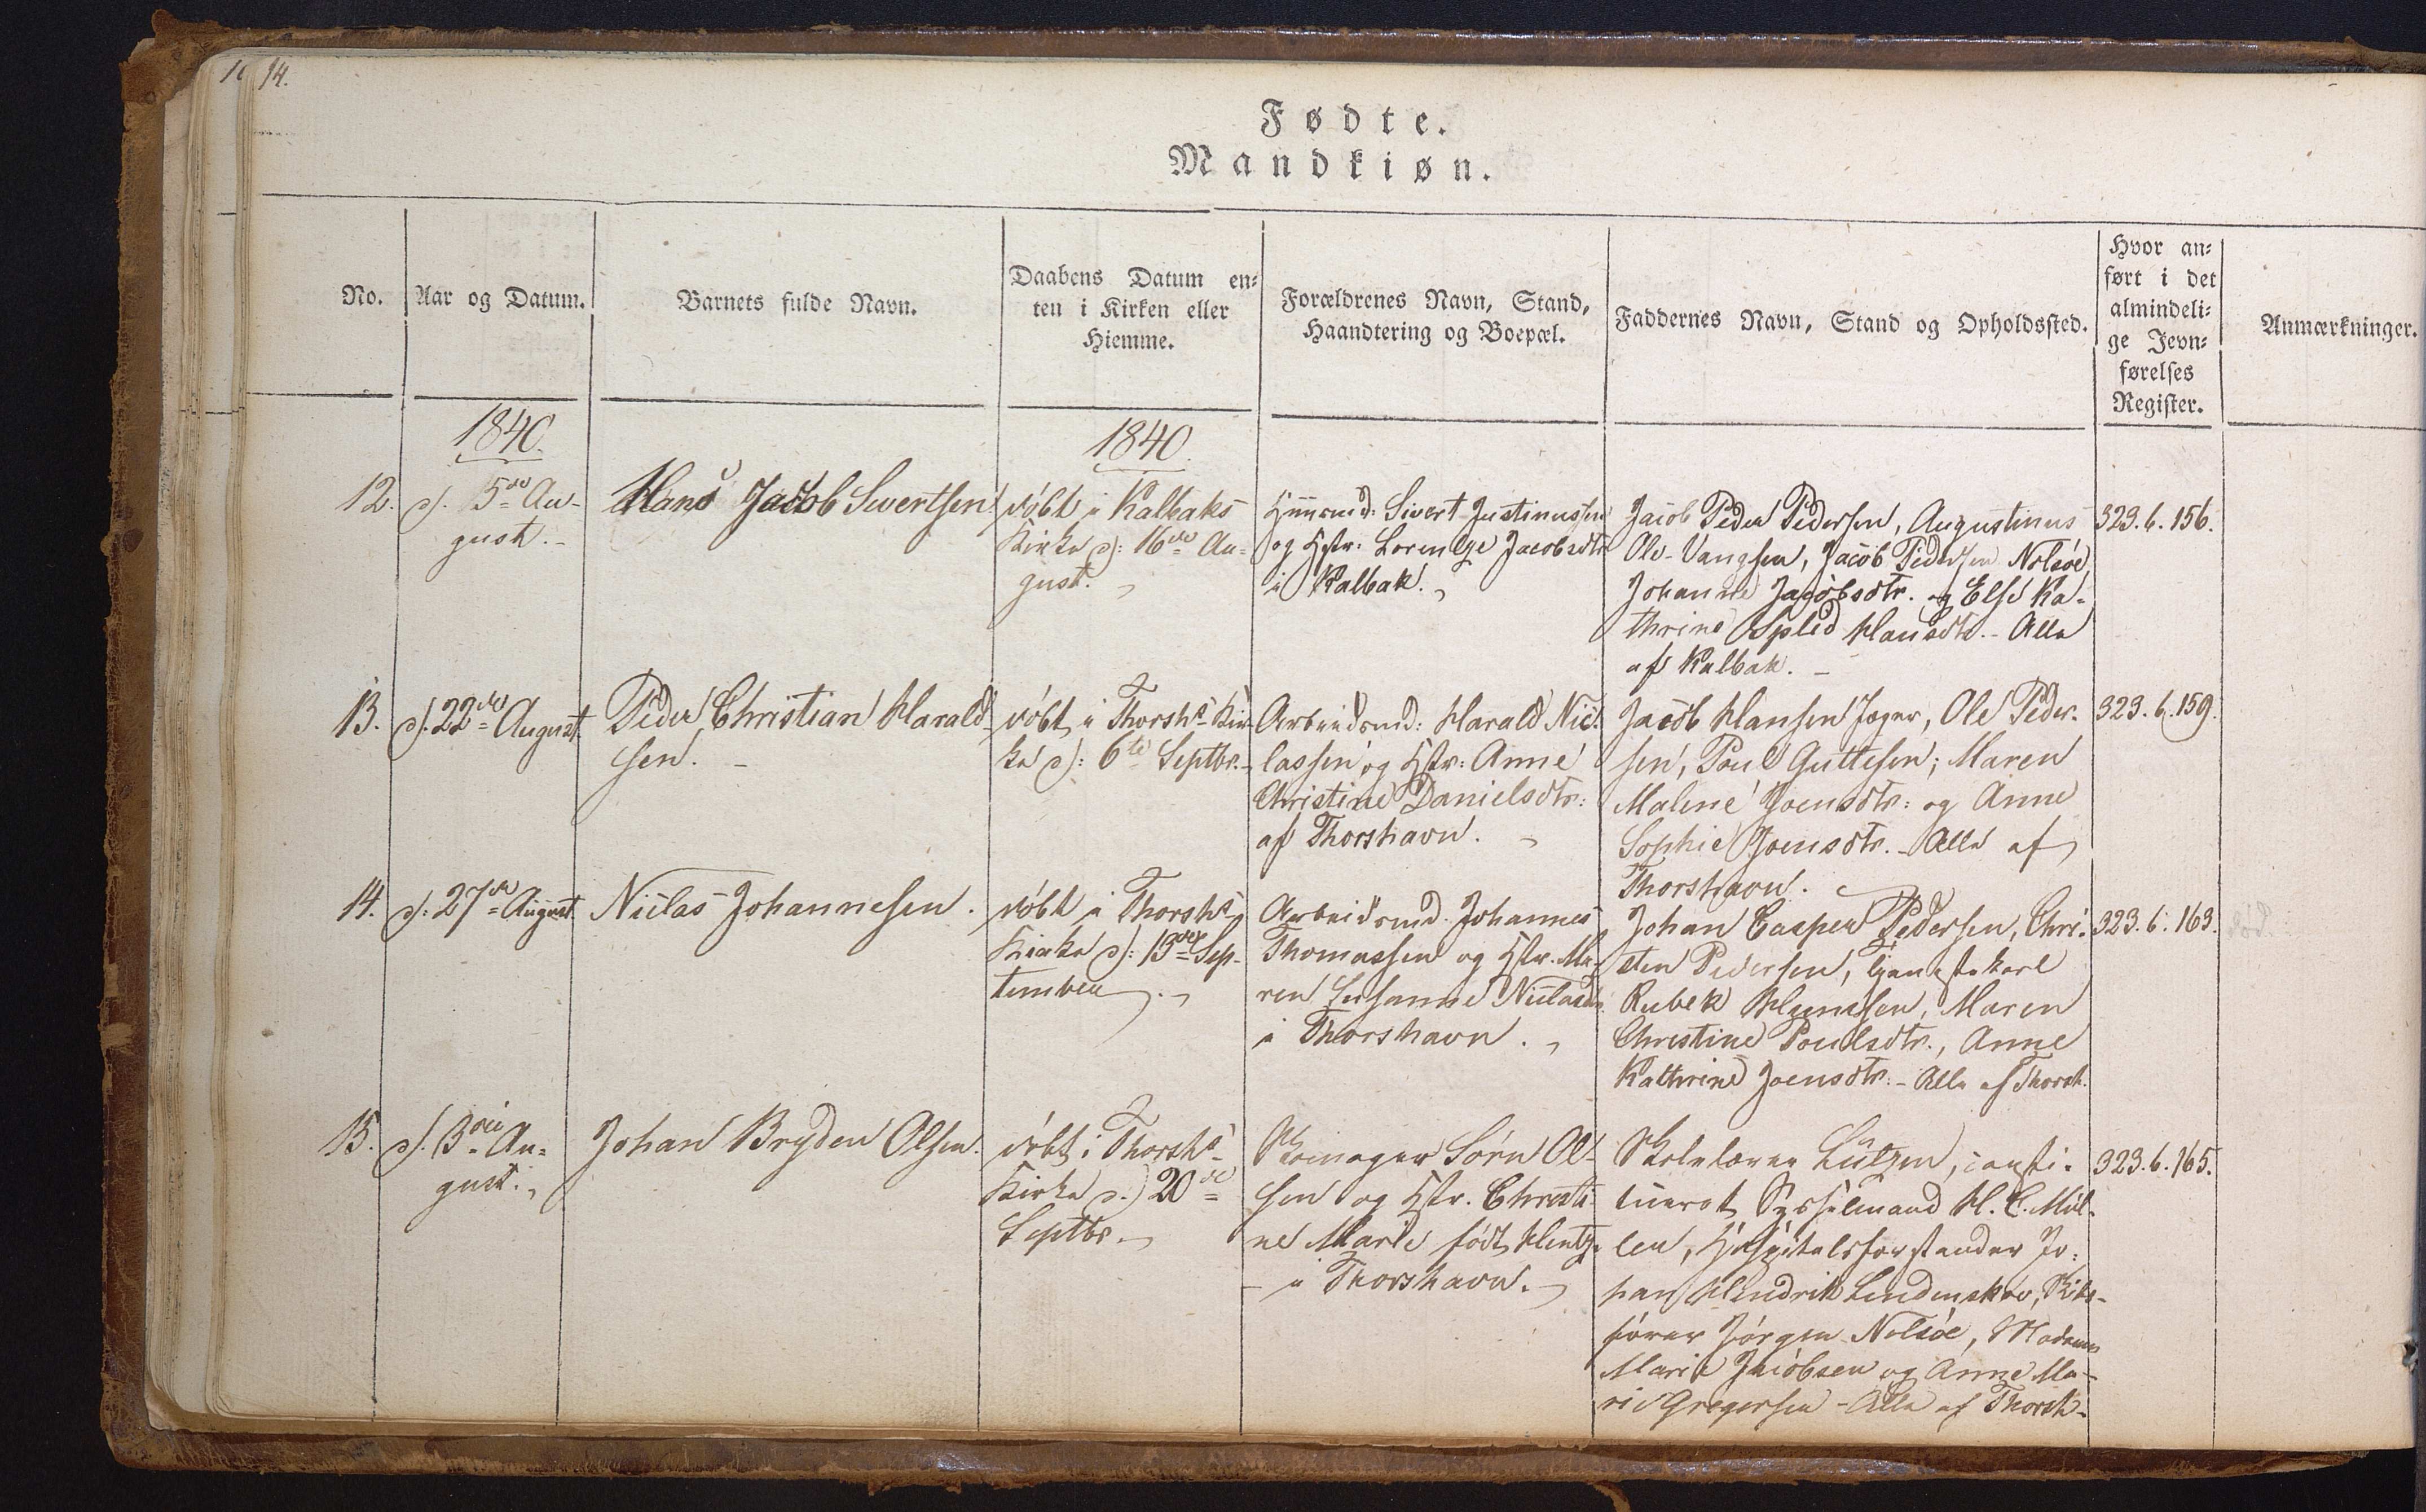 14.
Fødte.
Mandkiøn.
No.
Aar og Datum.
Barnets fulde Navn.
Daabens Datum en-
ten i Kirken eller
Hiemme.
Forældrenes Navn, Stand,
Haandtering og Boepæl.
Faddernes Navn, Stand og Opholdssted.
Hvor an-
ført i det
almindeli-
ge Jevn-
førelses
Register.
Anmærkninger.
1840.
1840.
12.
d. 5de Au-
gust.
Hans Jacob Sivertsen
døbt i Kalbaks
Kirke d: 16de Au-
gust.
Sivert Justinussen
og Hstr. Lorentze Jacobsdtr
i Kalbak.
Jacob Peder Pedersen, Augustinus
Ole-Vangsen, Jacob Pedersen Nolsøe,
Johanne Jacobsdtr. og Else Ka-
thrine Hansdtr. - Alle
af Kalbak. -
323. 6. 156.
13.
d. 22de August.
Peder Christian Harald-
sen. -
døbt i Thorshs Kir-
ke d: 6te Septbr. -
Arbeidsmd: Harald Nic-
lassen og Hstr: Anne
Christine Danielsdtr:
af Thorshavn.
Jacob Hansen Jæger, Ole Peder-
sen, Poul Guttesen; Maren
Malene Joensdtr: og Anne
Sophie Joensdtr. - Alle af
Thorshavn.
323. 6. 159.
14.
d: 27de August.
Niclas Johannesen.
døbt i Thorshs
Kirke d: 13de Sep-
tember.
Arbeidsmd. Johannes
Thomassen og Hstr. Ma-
ren Susanne Niclasdtr.
i Thorshavn.
Johan Casper Pedersen, Chri-
sten Pedersen, Tjenestekarl
Rubek Hansen, Maren
Christine Poulsdtr., Anne
Kathrine Joensdtr. - Alle af Thorsh.
323. 6. 163.
15.
d. 3die Au-
gust.
Johan Bryden Olsen.
døbt i Thorshs
Kirke d.) 20de
Septbr. -
Skomager Sørn Ol-
sen og Hstr. Christi-
ne Marie født Hentze
- i Thorshavn. -
Skolelærer Lützen, consti-
tueret Sysselmand H. C. Mül-
ler, Hospitalsforstander Jo-
han Hendrik Lindenskov,
Jørgen Nolsøe, Madame
Marie Jacobsen og Anne Ma-
rie Gregersen - Alle af Thorsh-
323. 6. 165.